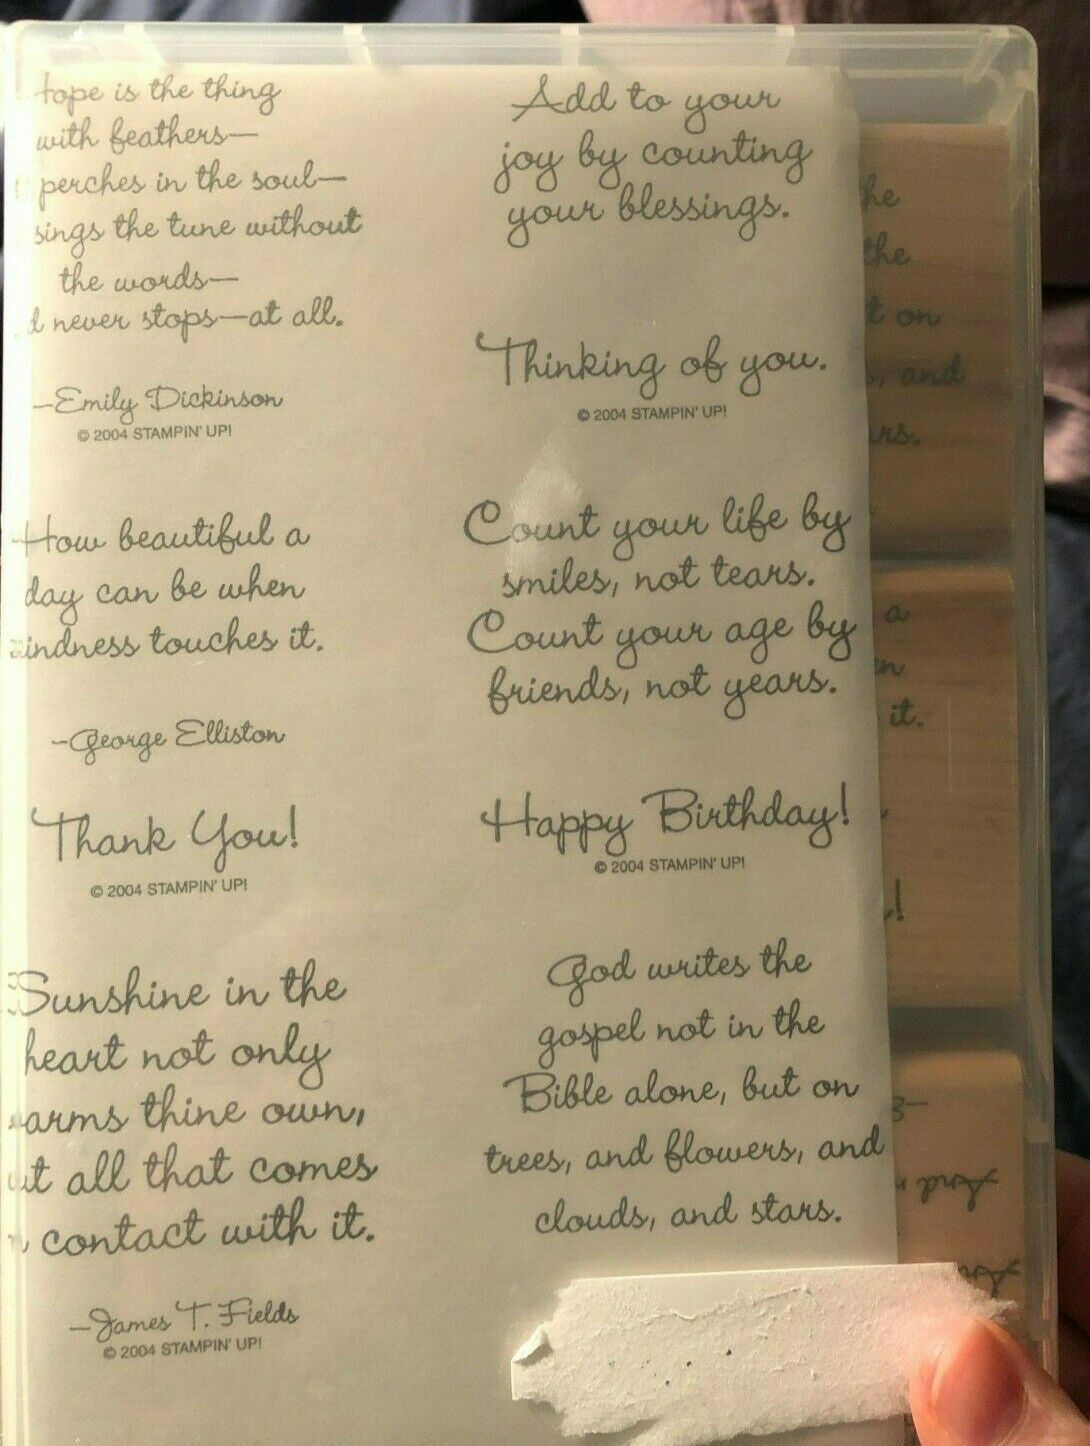 Hope is the thing
with feathers—
perches in the soul—
sings the tune without
the words—
never stops—at all.
—Emily Dickinson
© 2004 STAMPIN' UP!
How beautiful a
day can be when
kindness touches it.
–George Elliston
Thank You!
© 2004 STAMPIN' UP!
Sunshine in the
heart not only
warms thine own,
but all that comes
in contact with it.
—James T. Fields
© 2004 STAMPIN' UP!
Add to your
joy by counting
your blessings.
Thinking of you.
© 2004 STAMPIN' UP!
Count your life by
smiles, not tears.
Count your age by
friends, not years.
Happy Birthday!
© 2004 STAMPIN' UP!
God writes the
gospel not in the
Bible alone, but on
trees, and flowers, and
clouds, and stars.
the
the
on
and
a
it.